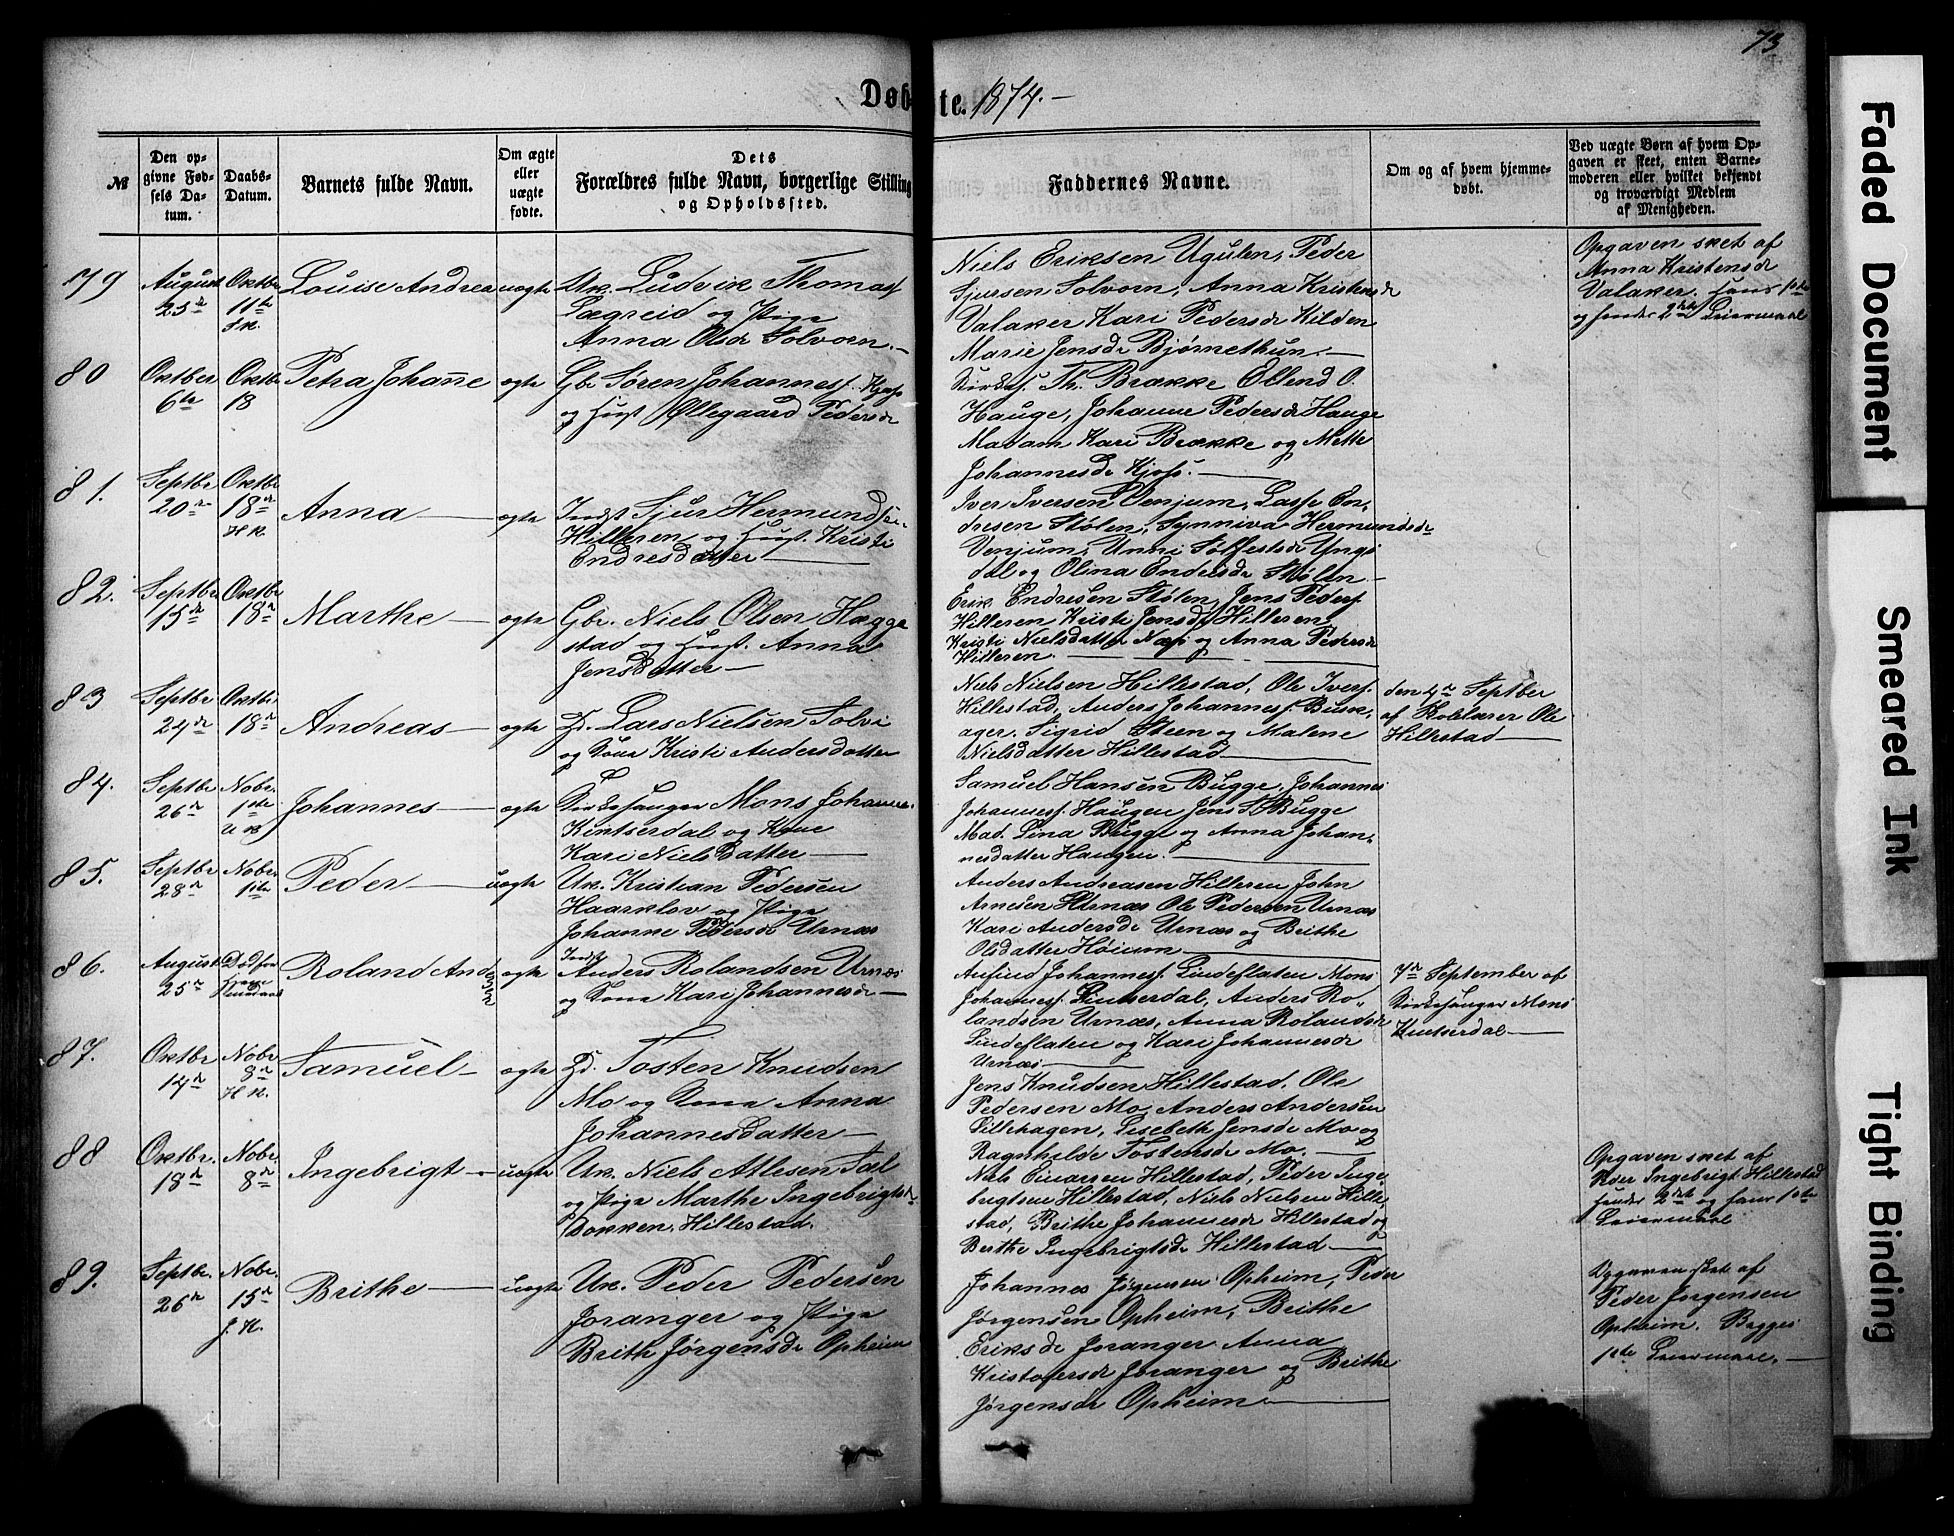 73
Døbte. 1874.-
№
Den op-
givne Fød-
sels Da-
tum.
Daabs-
Datum.
Barnets fulde Navn.
Om ægte
eller
uægte
fødte.
Dets
Forældres fulde Navn, borgerlige Stilling
og Opholdssted.
Faddernes Navne.
Om og af hvem hjemme-
døbt.
Ved uægte Børn af hvem Op-
gaven er skeet, enten Barne-
moderen eller hvilket bekjendt
og troværdigt Medlem
af Menigheden.
79
August
25de
Oktbr
11te
Louise Andrea
uægte
Uk. Ludvik Thomass
Lægreid og Pige
Anna Olsdr Solvorn.-
Niels Eriksen Ugulen, Peder
Sjursen Solvorn, Anna Kristensdr
Valaker Kari Pedersdr Kilden
Marie Jensdr Bjørnethun.-
Opgaven sket af
Anna Kristensdr
Valaker. Hans 1ste
og hendes 2det Leiermaal
80
Oktber
6te
Oktb
18
Petra Johanne
ægte
Gbr Søren Johanness. Kjøs
og Hust Øllegaard Pedersdr
Th. Brække Ellend O.
Hauge, Johanne Pedersdr Hauge
Madam Kari Brække og Mette
Johannesdr Kjøs.-
81.
Septbr
20de
Oktbr
18de
H K.
Anna-
ægte
Indst Sjur Hermundsen
Hilleren og Hust. Kristi
Endresdatter-
Iver Iversen Venjum, Lasse En-
dresen Stølen, Synniva Hermundsdr
Venjum, Unni Sølfestsdr Ungs
dal og Olina Endresdr Stølen-
82.
Septbr
15de
Oktbr
18de
Marthe-
ægte
Gbr. Niels Olsen Hægge
stad og Hust. Anna
Jensdatter-
Erik Endresen Stølen, Jens Peders.
Hilleren Kristi Jensdr Hilleren
Kristi Nielsdatter Næss og Anna Pedersdr
Hilleren.
83
Septbr
24de
Oktbr
18de
Andreas-
ægte
Lars Nielsen Solvi
og Kone Kristi Andersdatter
Niels Nielsen Hillestad, Ole Ivers.
Hillestad, Anders Johanness. Busk,
ager, Sigrid Steen og Malene
Nielsdatter Hillestad-
den 4de Septber
af Skolelærer Ole
Hillestad-
84.
Septbr
26de
Nobr.
1ste
U K
Johannes-
ægte
Kirkesanger Mons Johannes.
Kintserdal og Kone
Kari Nielsdatter-
Samuel Hansen Bugge, Johannes
Johanness. Haugen Jens S Bugge
Mad. Lina Bugge og Anna Johan-
nesdatter Haugen.-
85.
Septbr
28de
Nobr.
1ste
Peder-
uægte
Uk. Kristian Pedersen
Haarklov og Pige
Johanne Pedersdr Urnæs
Anders Andreasen Hilleren John
Arnesen Urnæs Ole Pedersen Urnæs
Kari Andersdr Urnæs og Brithe
Olsdatter Høium-
86.
August
25de
Død før
Roland And
ægte
Indst
Anders Rolandsen Urnæs
og Kone Kari Johannesdr-
Anfind Johanness. Lindeflaten Mons
Johanness. Kintserdal, Anders Ro-
landsen Urnæs, Anna Rolandsdr
Lindeflaten og Kari Johannesdr
Urnæs-
7de September af
Kirkesanger Mons
Kintserdal-
87.
Oktbr
14de
Nobr
8de
H K.
Samuel-
ægte
Tosten Knudsen
Mo og Kone Anna
Johannesdatter-
Jens Knudsen Hillestad, Ole
Pedersen Mo, Anders Andersen
Lillehagen, Lisebeth Jensdr Mo og
Ragnhilde Tostensdr Mo.-
88
Oktbr.
18de
Nobr
8de
Ingebrigt-
uægte
Uk. Niels Atlesen Sæl
og Pige Marthe Ingebrigtsdr
Dokken, Hillestad.
Niels Einarsen Hillestad, Peder Inge
brigtsen Hillestad, Niels Nielsen Hille,
stad, Brithe Johannesdr Hillestad og
Berthe Ingebrigtsdr Hillestad-
Opgaven sket af
Peder Ingebrigt. Hillestad
hendes 2det og hans 1ste
Leiermaal
89.
Septbr.
26de
Nobr.
15de
J. K.
Brithe-
uægte
Uk. Peder Pedersen
Joranger og Pige
Brith Jørgensdr Opheim
Johannes Jørgensen Opheim, Peder
Jørgensen Opheim, Brithe
Eriksdr Joranger Anna
Kristofersdr Joranger og Brithe
Jørgensdr Opheim-
Opgaven sket af
Peder Jørgensen
Opheim. Begges
1ste Leiermaal.-
Faded Document
Smeared Ink
Tight Binding